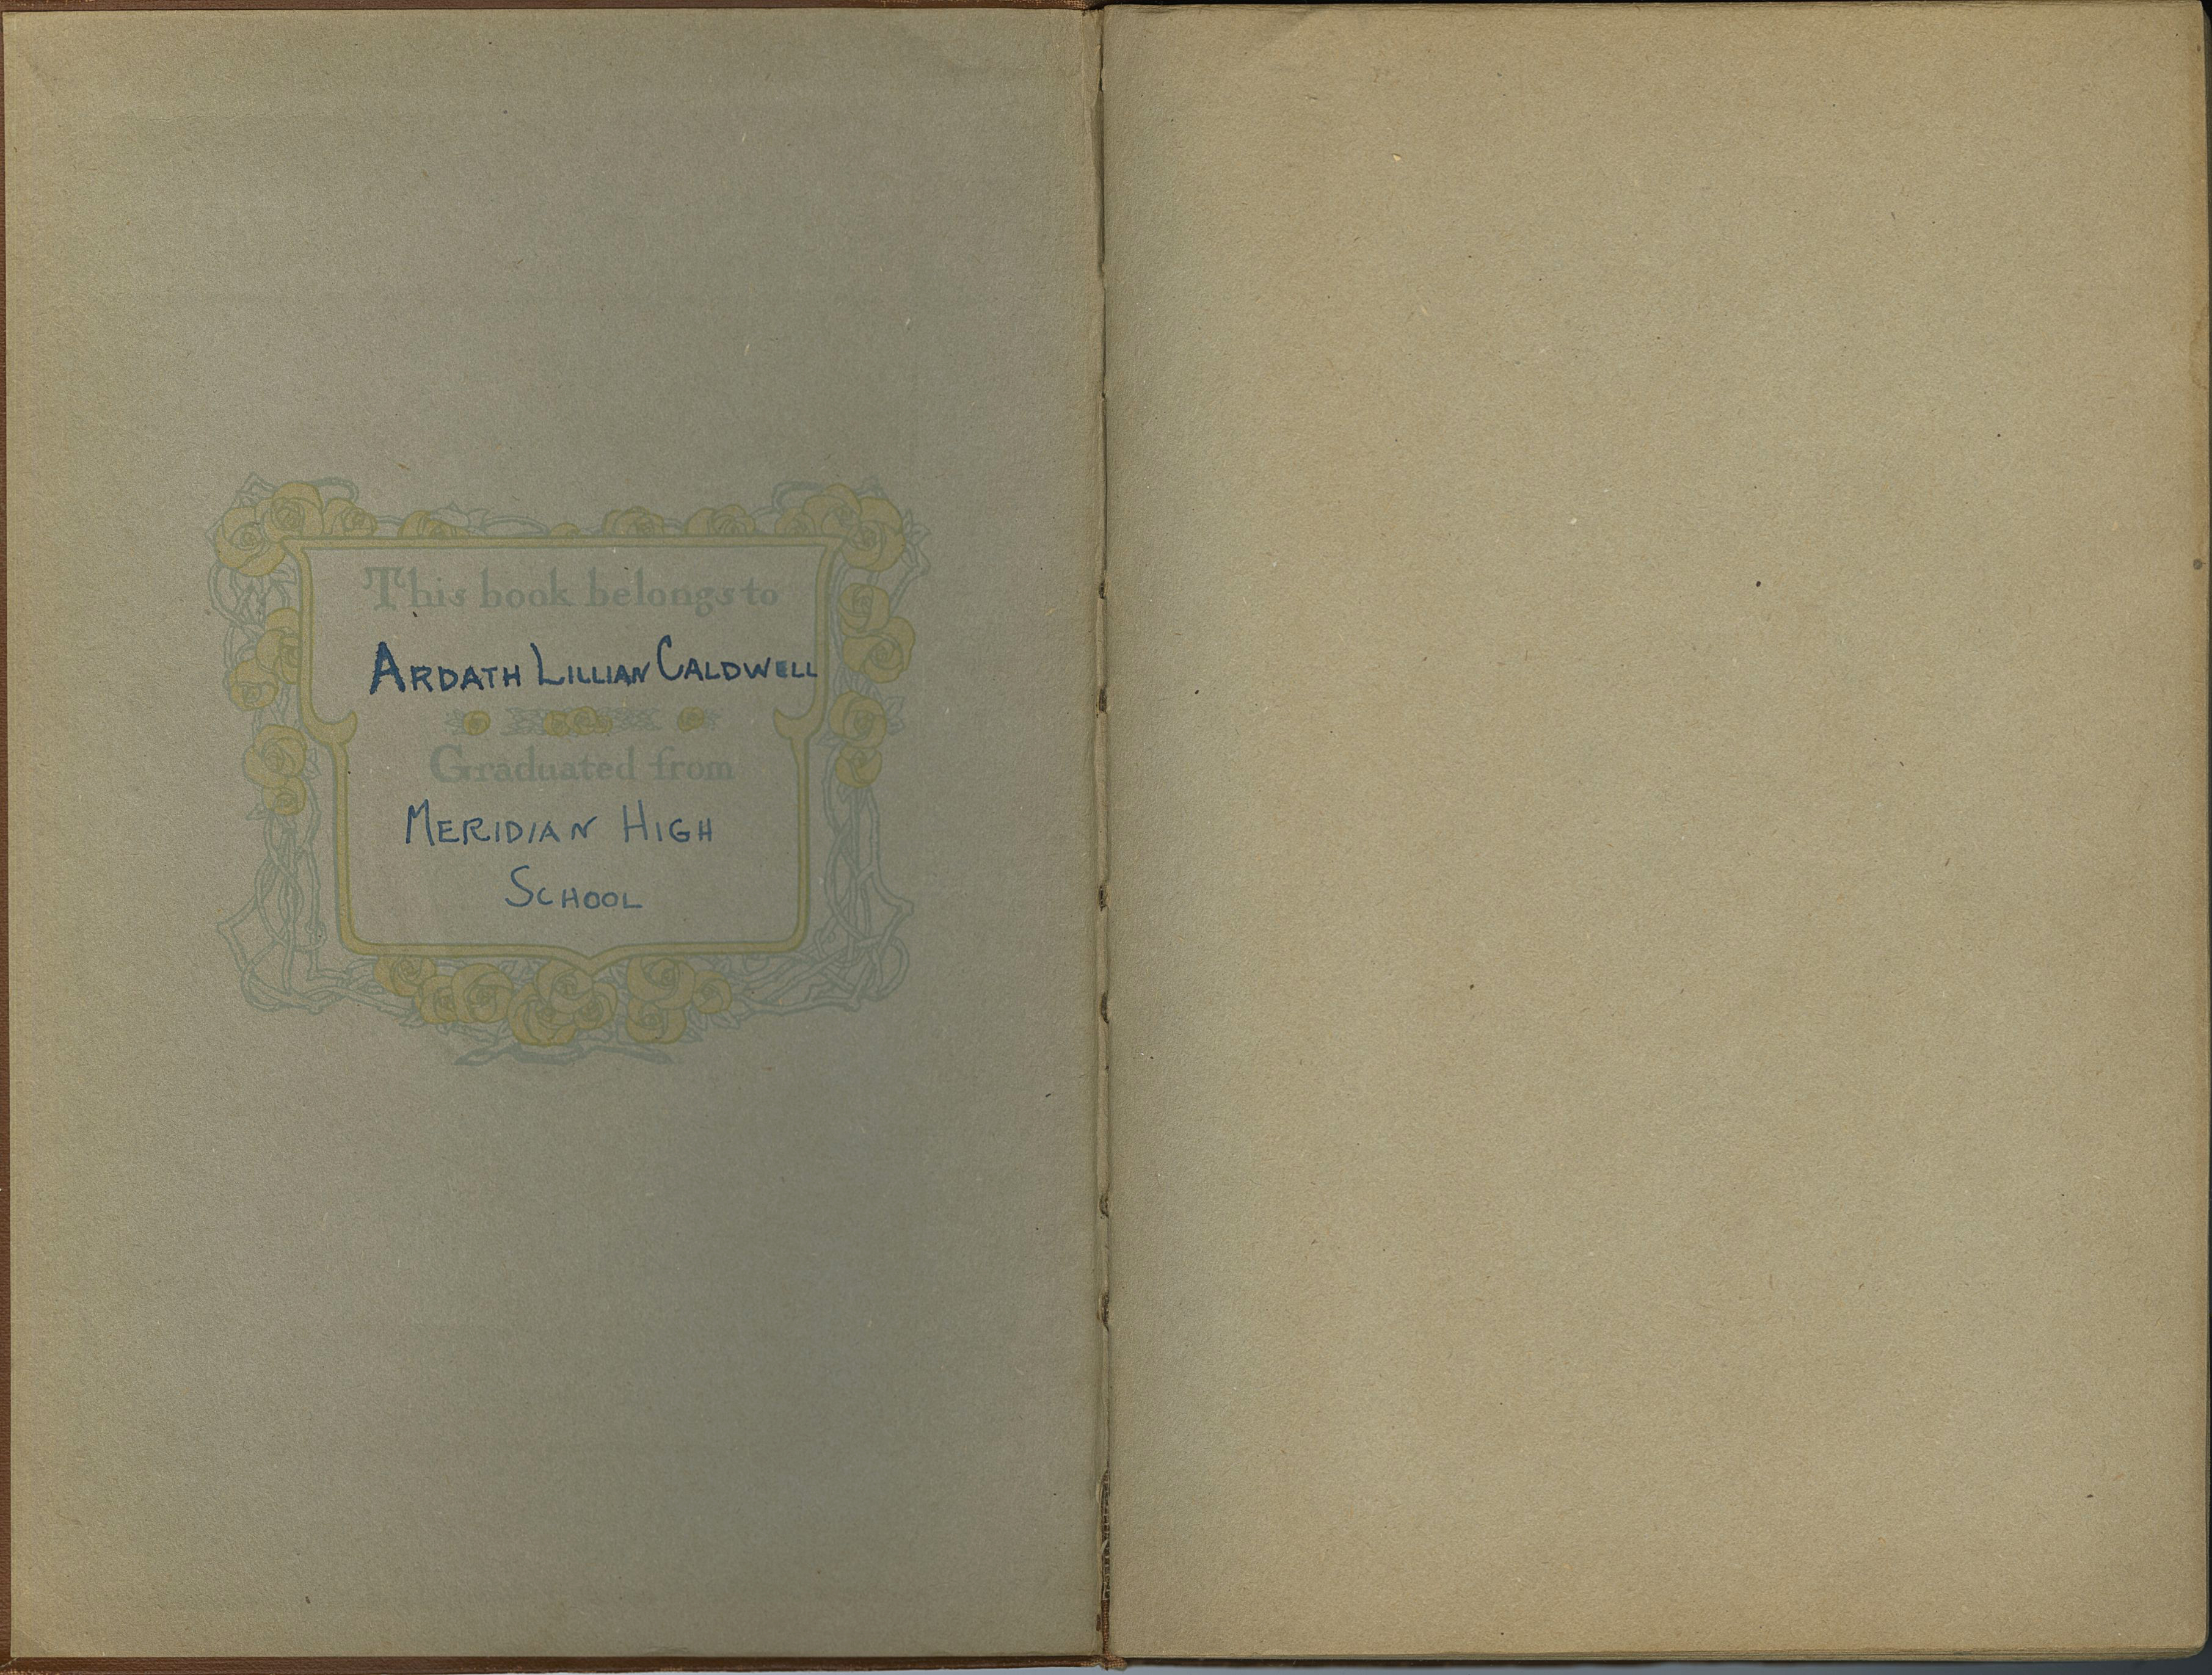 This book belongs to
ARDATH LILLIAN CALDWELL
Graduated from
MERIDIAN HIGH
SCHOOL